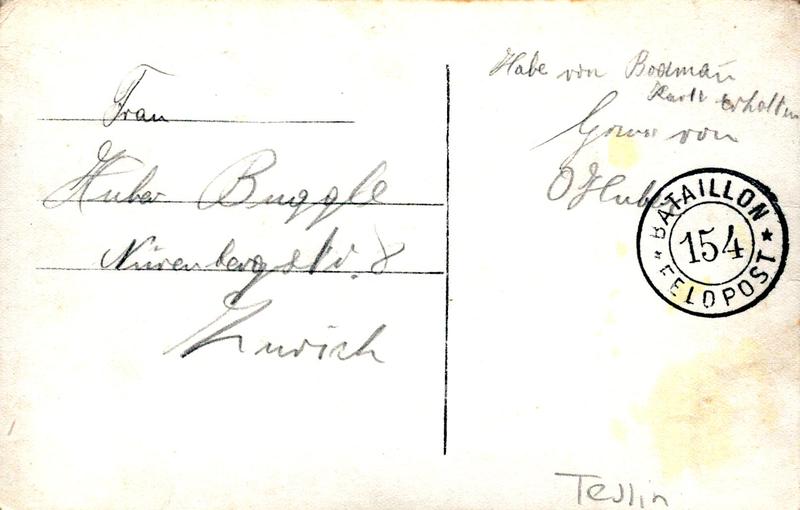 Frau
Huber Buggle
Nürenbergstr. 8
Zürich
Habe von Bodman
Karte erhalten
Gruss von
O Huber
BATAILLON
154
FELDPOST